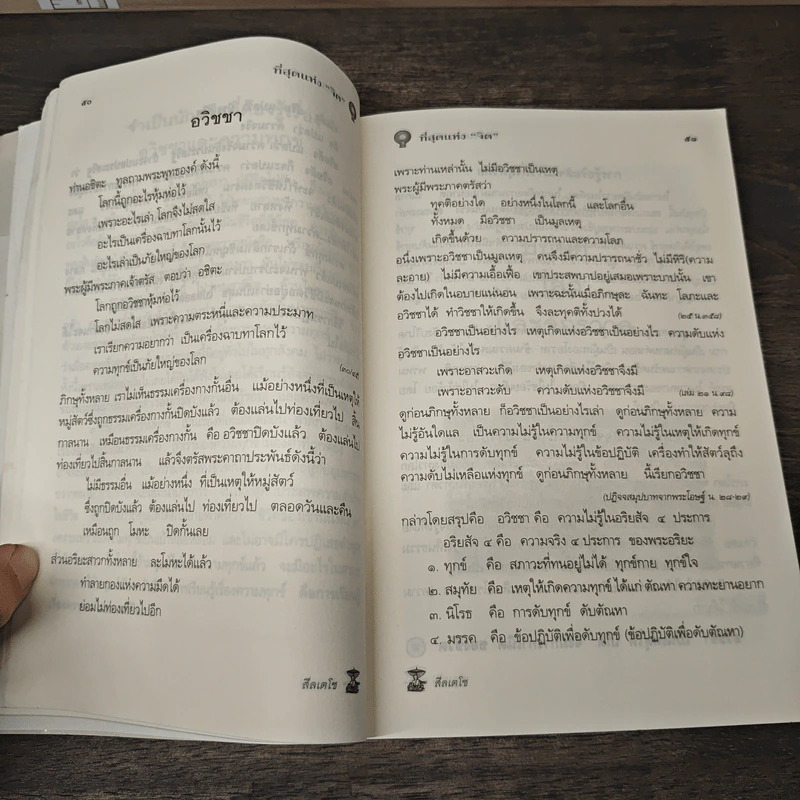 ๕๐
ที่สุดแห่ง "จิต"
อวิชชา
ท่านอชิตะ ทูลถามพระพุทธองค์ ดังนี้
โลกนี้ถูกอะไรหุ้มห่อไว้
เพราะอะไรเล่า โลกจึงไม่สดใส
อะไรเป็นเครื่องฉาบทาโลกนั้นไว้
อะไรเล่าเป็นภัยใหญ่ของโลก
พระผู้มีพระภาคเจ้าตรัส ตอบว่า อชิตะ
โลกถูกอวิชชาหุ้มห่อไว้
โลกไม่สดใส เพราะความตระหนี่และความประมาท
เราเรียกความอยากว่า เป็นเครื่องฉาบทาโลกไว้
ความทุกข์เป็นภัยใหญ่ของโลก
ภิกษุทั้งหลาย เราไม่เห็นธรรมเครื่องกางกั้นอื่น แม้อย่างหนึ่งที่เป็นเหตุให้
หมู่สัตว์ซึ่งถูกธรรมเครื่องกางกั้นปิดบังแล้ว ต้องแล่นไปท่องเที่ยวไป สิ้น
กาลนาน เหมือนธรรมเครื่องกางกั้น คือ อวิชชาปิดบังแล้ว ต้องแล่นไป
ท่องเที่ยวไปสิ้นกาลนาน แล้วจึงตรัสพระคาถาประพันธ์ดังนี้ว่า
ไม่มีธรรมอื่น แม้อย่างหนึ่ง ที่เป็นเหตุให้หมู่สัตว์
ซึ่งถูกปิดบังแล้ว ต้องแล่นไป ท่องเที่ยวไป ตลอดวันและคืน
เหมือนถูก โมหะ ปิดกั้นเลย
ส่วนอริยะสาวกทั้งหลาย ละโมหะได้แล้ว
ทำลายกองแห่งความมืดได้
ย่อมไม่ท่องเที่ยวไปอีก
สีลเตโช
ที่สุดแห่ง "จิต"
๕๑
เพราะท่านเหล่านั้น ไม่มีอวิชชาเป็นเหตุ
พระผู้มีพระภาคตรัสว่า
ทุคติอย่างใด อย่างหนึ่งในโลกนี้ และโลกอื่น
ทั้งหมด มีอวิชชา เป็นมูลเหตุ
เกิดขึ้นด้วย ความปรารถนาและความโลภ
อนึ่งเพราะอวิชชาเป็นมูลเหตุ คนจึงมีความปรารถนาชั่ว ไม่มีหิริ(ความ
ละอาย) ไม่มีความเอื้อเฟื้อ เขาประสพบาปอยู่เสมอเพราะบาปนั้น เขา
ต้องไปเกิดในอบายแน่นอน เพราะฉะนั้นเมื่อภิกษุละ ฉันทะ โลภะและ
อวิชชาได้ ทำวิชชาให้เกิดขึ้น จึงละทุคติทั้งปวงได้ (๒๕ น.๓๕๔)
อวิชชาเป็นอย่างไร เหตุเกิดแห่งอวิชชาเป็นอย่างไร ความดับแห่ง
อวิชชาเป็นอย่างไร
เพราะอาสวะเกิด เหตุเกิดแห่งอวิชชาจึงมี
เพราะอาสวะดับ ความดับแห่งอวิชชาจึงมี (เล่ม ๒๑ น.๙๔)
ดูก่อนภิกษุทั้งหลาย ก็อวิชชาเป็นอย่างไรเล่า ดูก่อนภิกษุทั้งหลาย ความ
ไม่รู้อันใดแล เป็นความไม่รู้ในความทุกข์ ความไม่รู้ในเหตุให้เกิดทุกข์
ความไม่รู้ในการดับทุกข์ ความไม่รู้ในข้อปฏิบัติ เครื่องทำให้สัตว์ลุถึง
ความดับไม่เหลือแห่งทุกข์ ดูก่อนภิกษุทั้งหลาย นี้เรียกอวิชชา
(ปฏิจจสมุปบาทจากพระโอษฐ์ น. ๒๘-๒๙)
กล่าวโดยสรุปคือ อวิชชา คือ ความไม่รู้ในอริยสัจ ๔ ประการ
อริยสัจ ๔ คือ ความจริง ๔ ประการ ของพระอริยะ
๑. ทุกข์ คือ สภาวะที่ทนอยู่ไม่ได้ ทุกข์กาย ทุกข์ใจ
๒. สมุทัย คือ เหตุให้เกิดความทุกข์ ได้แก่ ตัณหา ความทะยานอยาก
๓. นิโรธ คือ การดับทุกข์ ดับตัณหา
๔. มรรค คือ ข้อปฏิบัติเพื่อดับทุกข์ (ข้อปฏิบัติเพื่อดับตัณหา)
สีลเตโช